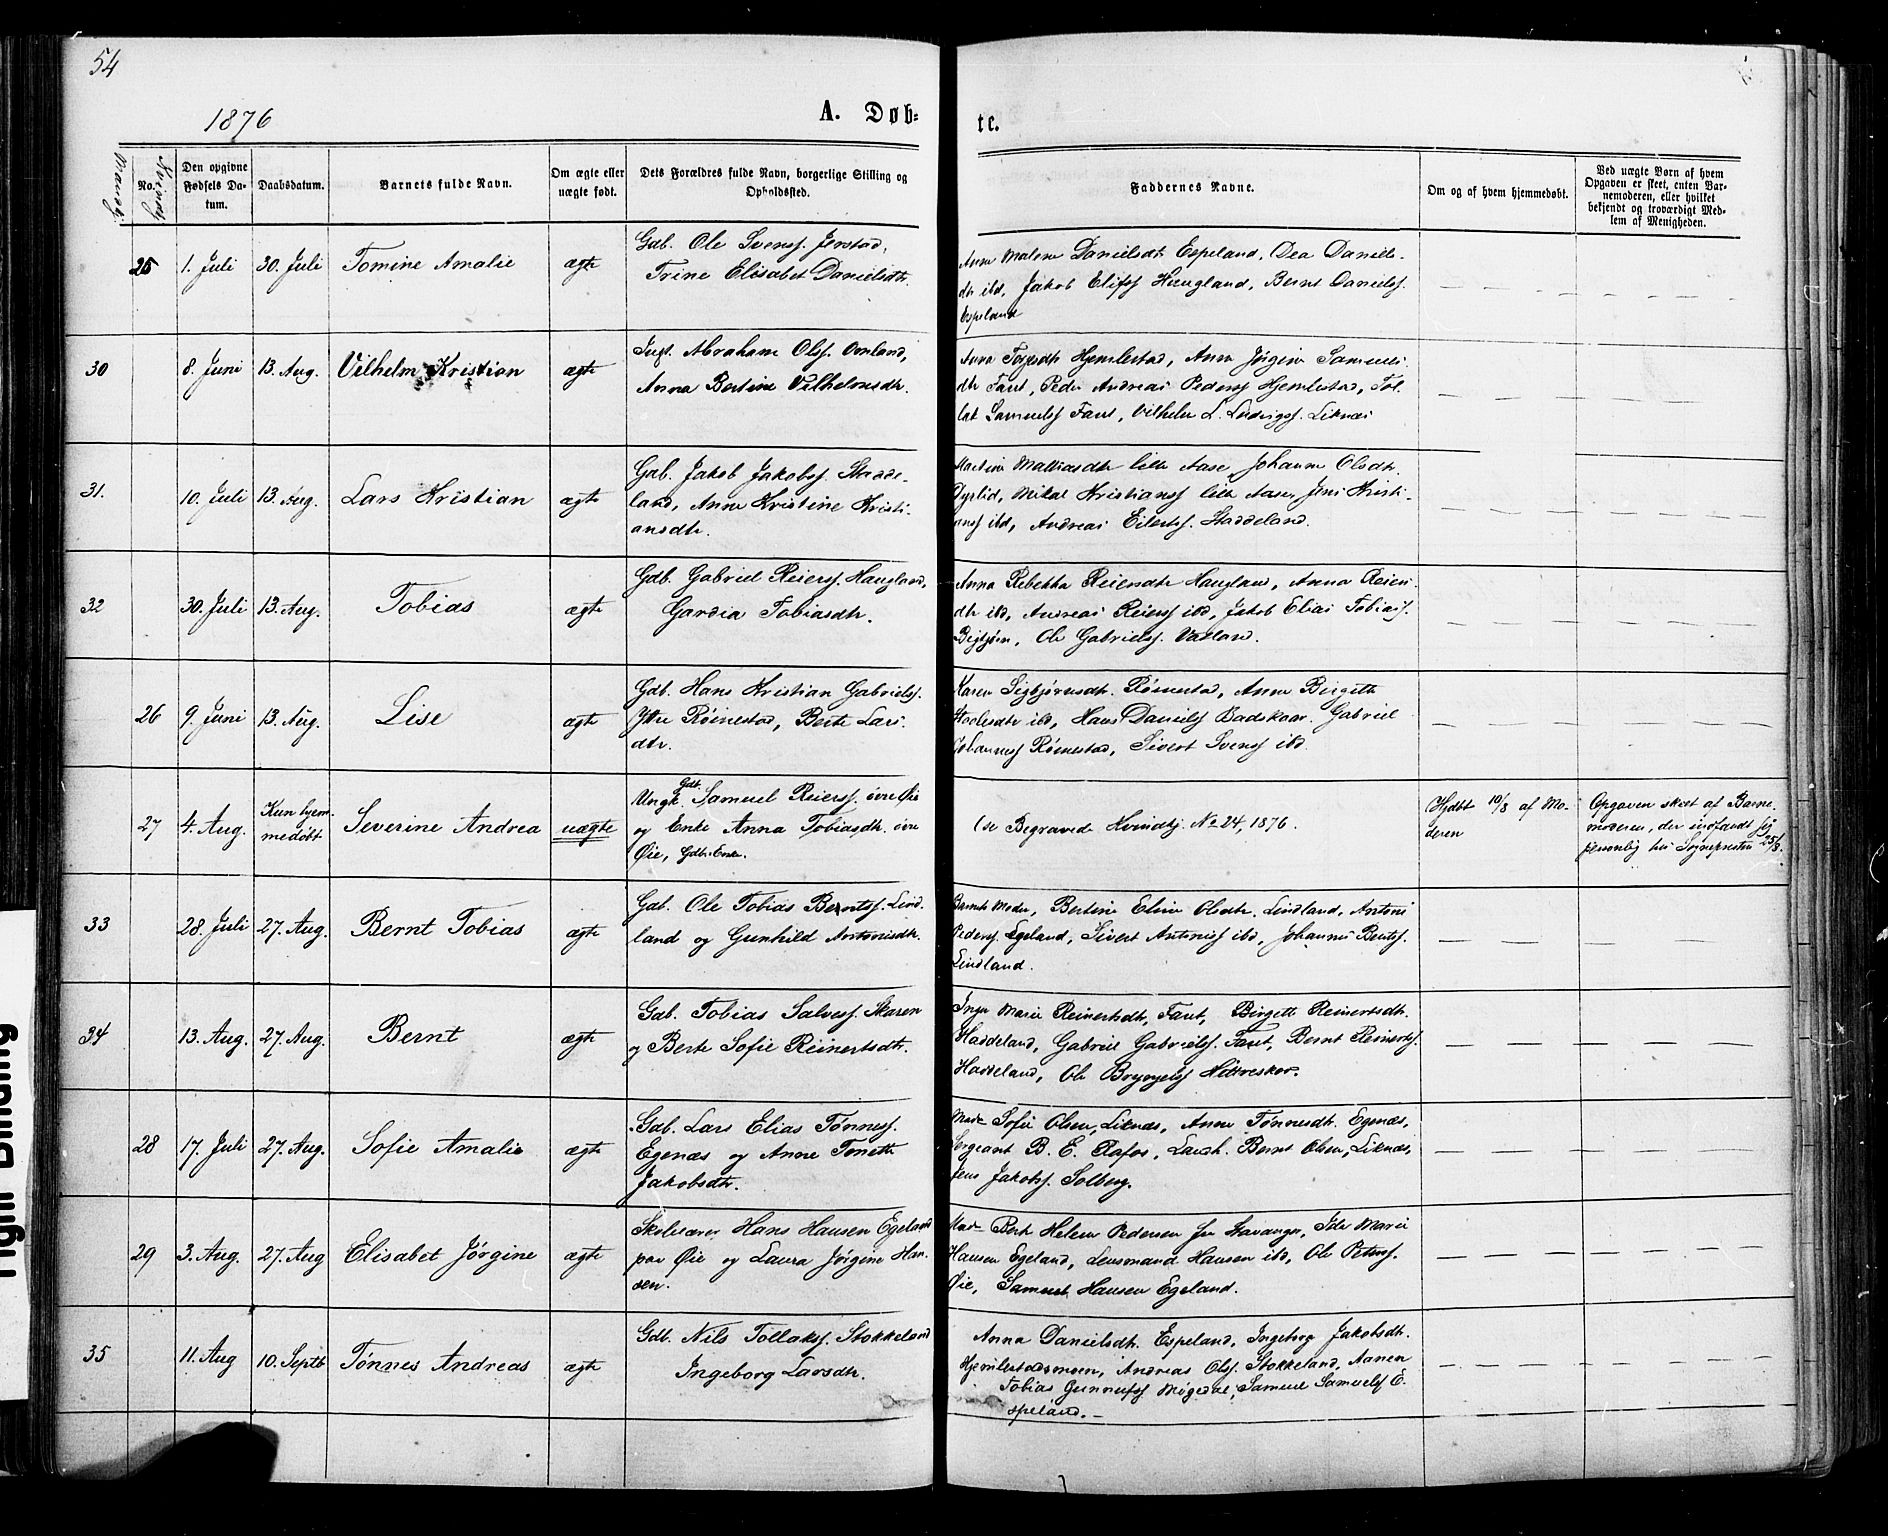 54
1876
A. Døb-
te.
Mandkj. No. Kvindekj.
Den opgivne Fødsels Da-tum.
Daabsdatum.
Barnets fulde Navn.
Om ægte eller uægte født.
Dets Forældres fulde Navn, borgerlige Stilling og Opholdssted.
Faddernes Navne.
Om og af hvem hjemmedøbt.
Ved uægte Børn af hvem
Opgaven er skeet, enten Bar-
nemoderen, eller hvilket
bekjendt og troværdigt Med-
lem af Menigheden.
25 1. Juli 30. Juli Tomine Amalie ægte
Gdb. Ole Svenss. Jerstad,
Trine Elisabet Danielsdtr.
Anne Malene Danielsdtr Espeland, Dea Daniels-
dtr ibd, Jakob Elifss Haugland, Bernt Danielss.
Espeland
30 8. Juni 13. Aug. Vilhelm Kristian ægte
Inst. Abraham Olss. Omland,
Anna Bertine Vilhelmsdtr.
Anna Tarjesdtr Hjemlestad, Anne Jørgine Samuels
dtr Faret, Peder Andreas Pederss Hjemlestad, Tol-
lak Samuelss Faret, Vilhelm L. Ludvigss. Liknæs
31. 10. Juli 13. Aug. Lars Kristian ægte
Gab. Jakob Jakobss. Stadde-
land, Anne Kristine Kristi-
ansdtr.
Martine Mathiasdtr lille Aase, Johanne Olsdtr.
Dyrlid, Mikal Kristianss lille Aase, Jens Kristi-
anss ibd, Andreas Eilertss. Staddeland.
32 30. Juli 13. Aug. Tobias ægte
Gdb. Gabriel Reierss. Haugland,
Gardia Tobiasdtr.
Anna Rebekka Reiersdtr Haugland, Anna Reiers
dtr ibd, Andreas Reierss ibd, Jakob Elias Tobiass.
Ole Gabrielss.
26 9. Juni 13. Aug. Lise ægte
Gdb. Hans Kristian Gabrielss.
Ytre Røinestad, Berte Lars-
dtr.
Karen Sigbjørnsdtr. Røinestad, Anne Birgitte
ibd, Hans Danielss Badskaar. Gabriel
Johanness Røinestad, Sivert Svenss ibd.
27 4. Aug. Kun hjem-
medøbt Severine Andrea uægte
Gdb.
Ungk. Samuel Reierss. øvre Øie
og Enke Anna Tobiasdtr. øvre
Øie, Gdb. Enke.
(se Begravede Kvindekj. No 24, 1876.
Hjdbt 10/8 af Mo-
deren
Opgaven skeet af Barne-
moderen, der indfandt sig
personlig hos Sognepresten 25/8.
33 28. Juli 27. Aug. Bernt Tobias ægte
Gab. Ole Tobias Berntss. Lind-
land og Gunhild Antonisdtr.
Barnets Moder, Bertine Eline Olsdtr. Lindland, Antoni
Pederss. Egeland, Sivert Antoniss ibd, Johannes Bentss.
Lindland.
34 13. Aug. 27. Aug. Bernt ægte
Gab. Tobias Salvess. Skaren
og Berte Sofie Reinertsdtr.
Inger Marie Reinertsdtr, Faret, Birgitt Reinertsdtr.
Haddeland, Gabriel Gabrielss. Faret, Bernt Reinertss.
Haddeland, Ole Bryngelss
28 17. Juli 27. Aug. Sofie Amalie ægte
Gab. Lars Elias Tønness.
Egenæs og Anne Tonette
Jakobsdtr.
Mad. Sofie Olsen, Liknæs, Anne Tønnesdtr. Egenæs,
Sergeant B. E. Rafos, Landh. Bernt Olsen, Liknæs,
Jens Jakobss. Solberg.
29 3. Aug. 27. Aug Elisabet Jørgine ægte
Skolelærer Hans Hansen Egeland
paa Øie og Laura Jørgine Han-
sen.
Mad. Berte Helene Pedersen fra Stavanger, Ida Marie
Hansen Egeland, Lensmand Hansen ibd, Ole Peterss.
Øie, Samuel Hansen Egeland.
35 11. Aug 10. Septb Tønnes Andreas ægte
Gdb. Nils Tollakss. Stokkeland
Ingeborg Larsdtr.
Anna Danielsdtr. Espeland, Ingeborg Jakobsdtr.
Hjemlestadmoen, Andreas Olss. Stokkeland, Aanen
Tobias Gunnufss Møgedal, Samuel Samuelss E-
speland.
Tight Binding